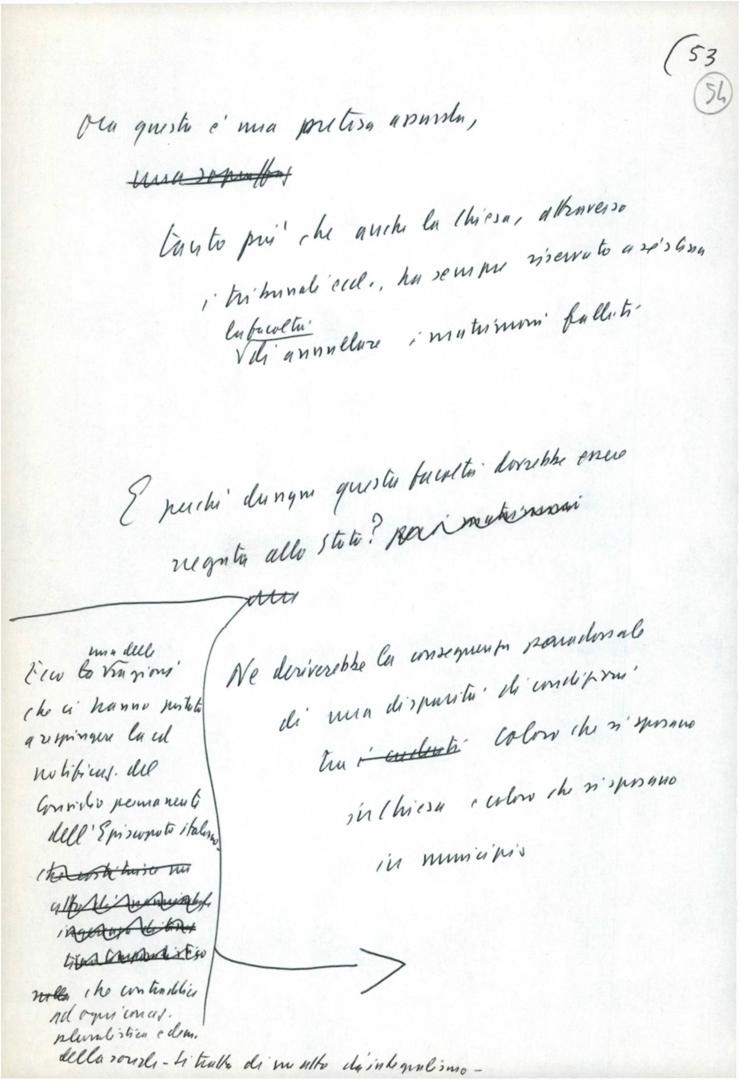 53
54
Ora questa è una pretesa assurda,
tanto più che anche la Chiesa, attraverso
i tribunali eccl., ha sempre riservato a sé stessa
la facoltà
di annullare i matrimoni falliti.
E perché dunque questa facoltà dovrebbe essere
negata allo Stato?
Ne deriverebbe la conseguenza paradossale
di una disparità di condizioni
tra i credenti coloro che si sposano
in Chiesa e coloro che si sposano
in municipio
una delle
Ecco le ragioni
che ci hanno portato
a respingere la cd
notificaz. del
Consiglio permanente
dell'Episcopato italiano
che contraddice
ad ogni concez.
pluralistica e dem.
della società - Si tratta di un atto di integralismo -